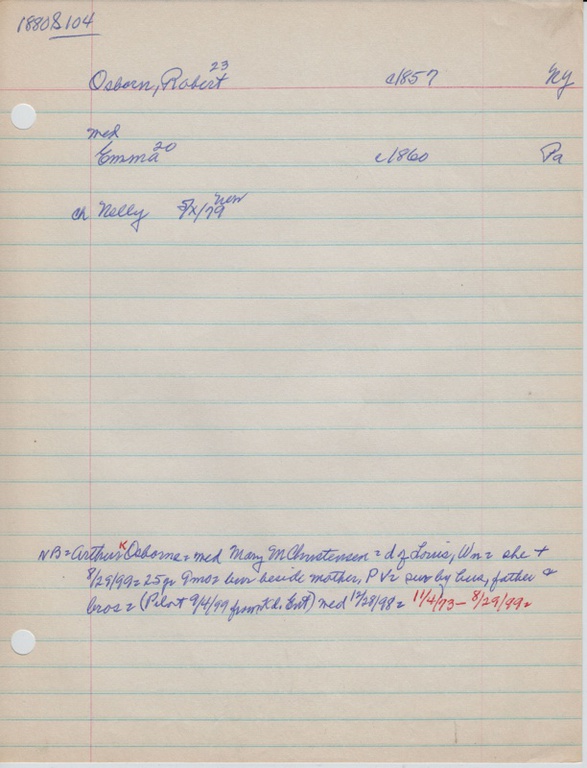 1880S104
Osborn, Robert 23 c1857 NY
med
Emma 20 c1860 Pa
ch Nelly 5/x/79 Nov
NB = Arthur K Osborne = med Mary M Christensen = d of Louis, Wn = she +
8/29/99 = 25 yr 9mo = bur beside mother, PV = surv by hus, father &
bros = (Pilot 9/4/99 from Kd. Ent) med 12/28/98 = 11/4/73 - 8/29/99 =